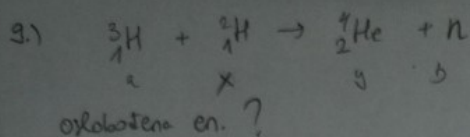 9.) ³₁H + ²₁H → ⁴₂He + n
a x y b
oslobođena en. ?